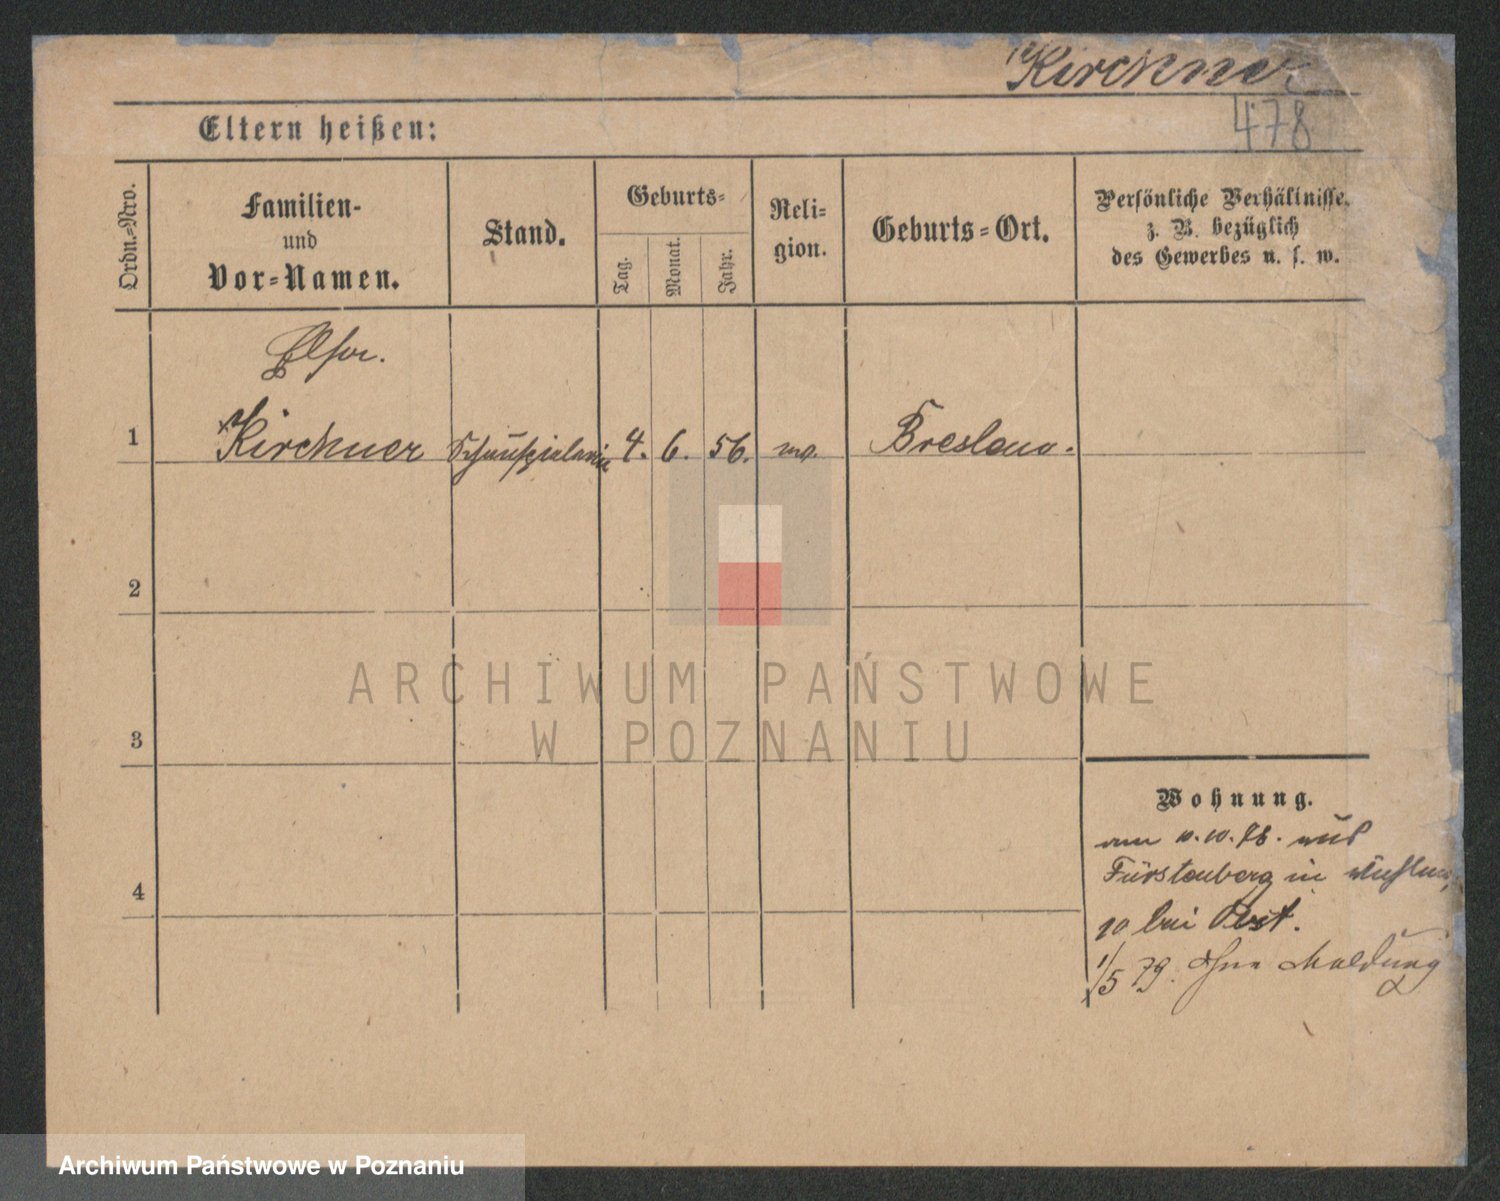 Kirchner
478
Eltern heißen:
Ordn.-Nro.
Familien-
und
Vor-Namen.
Stand.
Geburts-
Tag.
Monat.
Jahr.
Reli-
gion.
Geburts-Ort.
Persönliche Verhältnisse,
z. B. bezüglich
des Gewerbes u. s. w.
1
Kirchner
Schauspielerin
4.
6.
56.
Breslau.
2
3
4
Wohnung.
am 10.10.78. aus
Fürstenberg in
10 bei
1/5 79. Ohne Meldung
ARCHIWUM PAŃSTWOWE
W POZNANIU
Archiwum Państwowe w Poznaniu